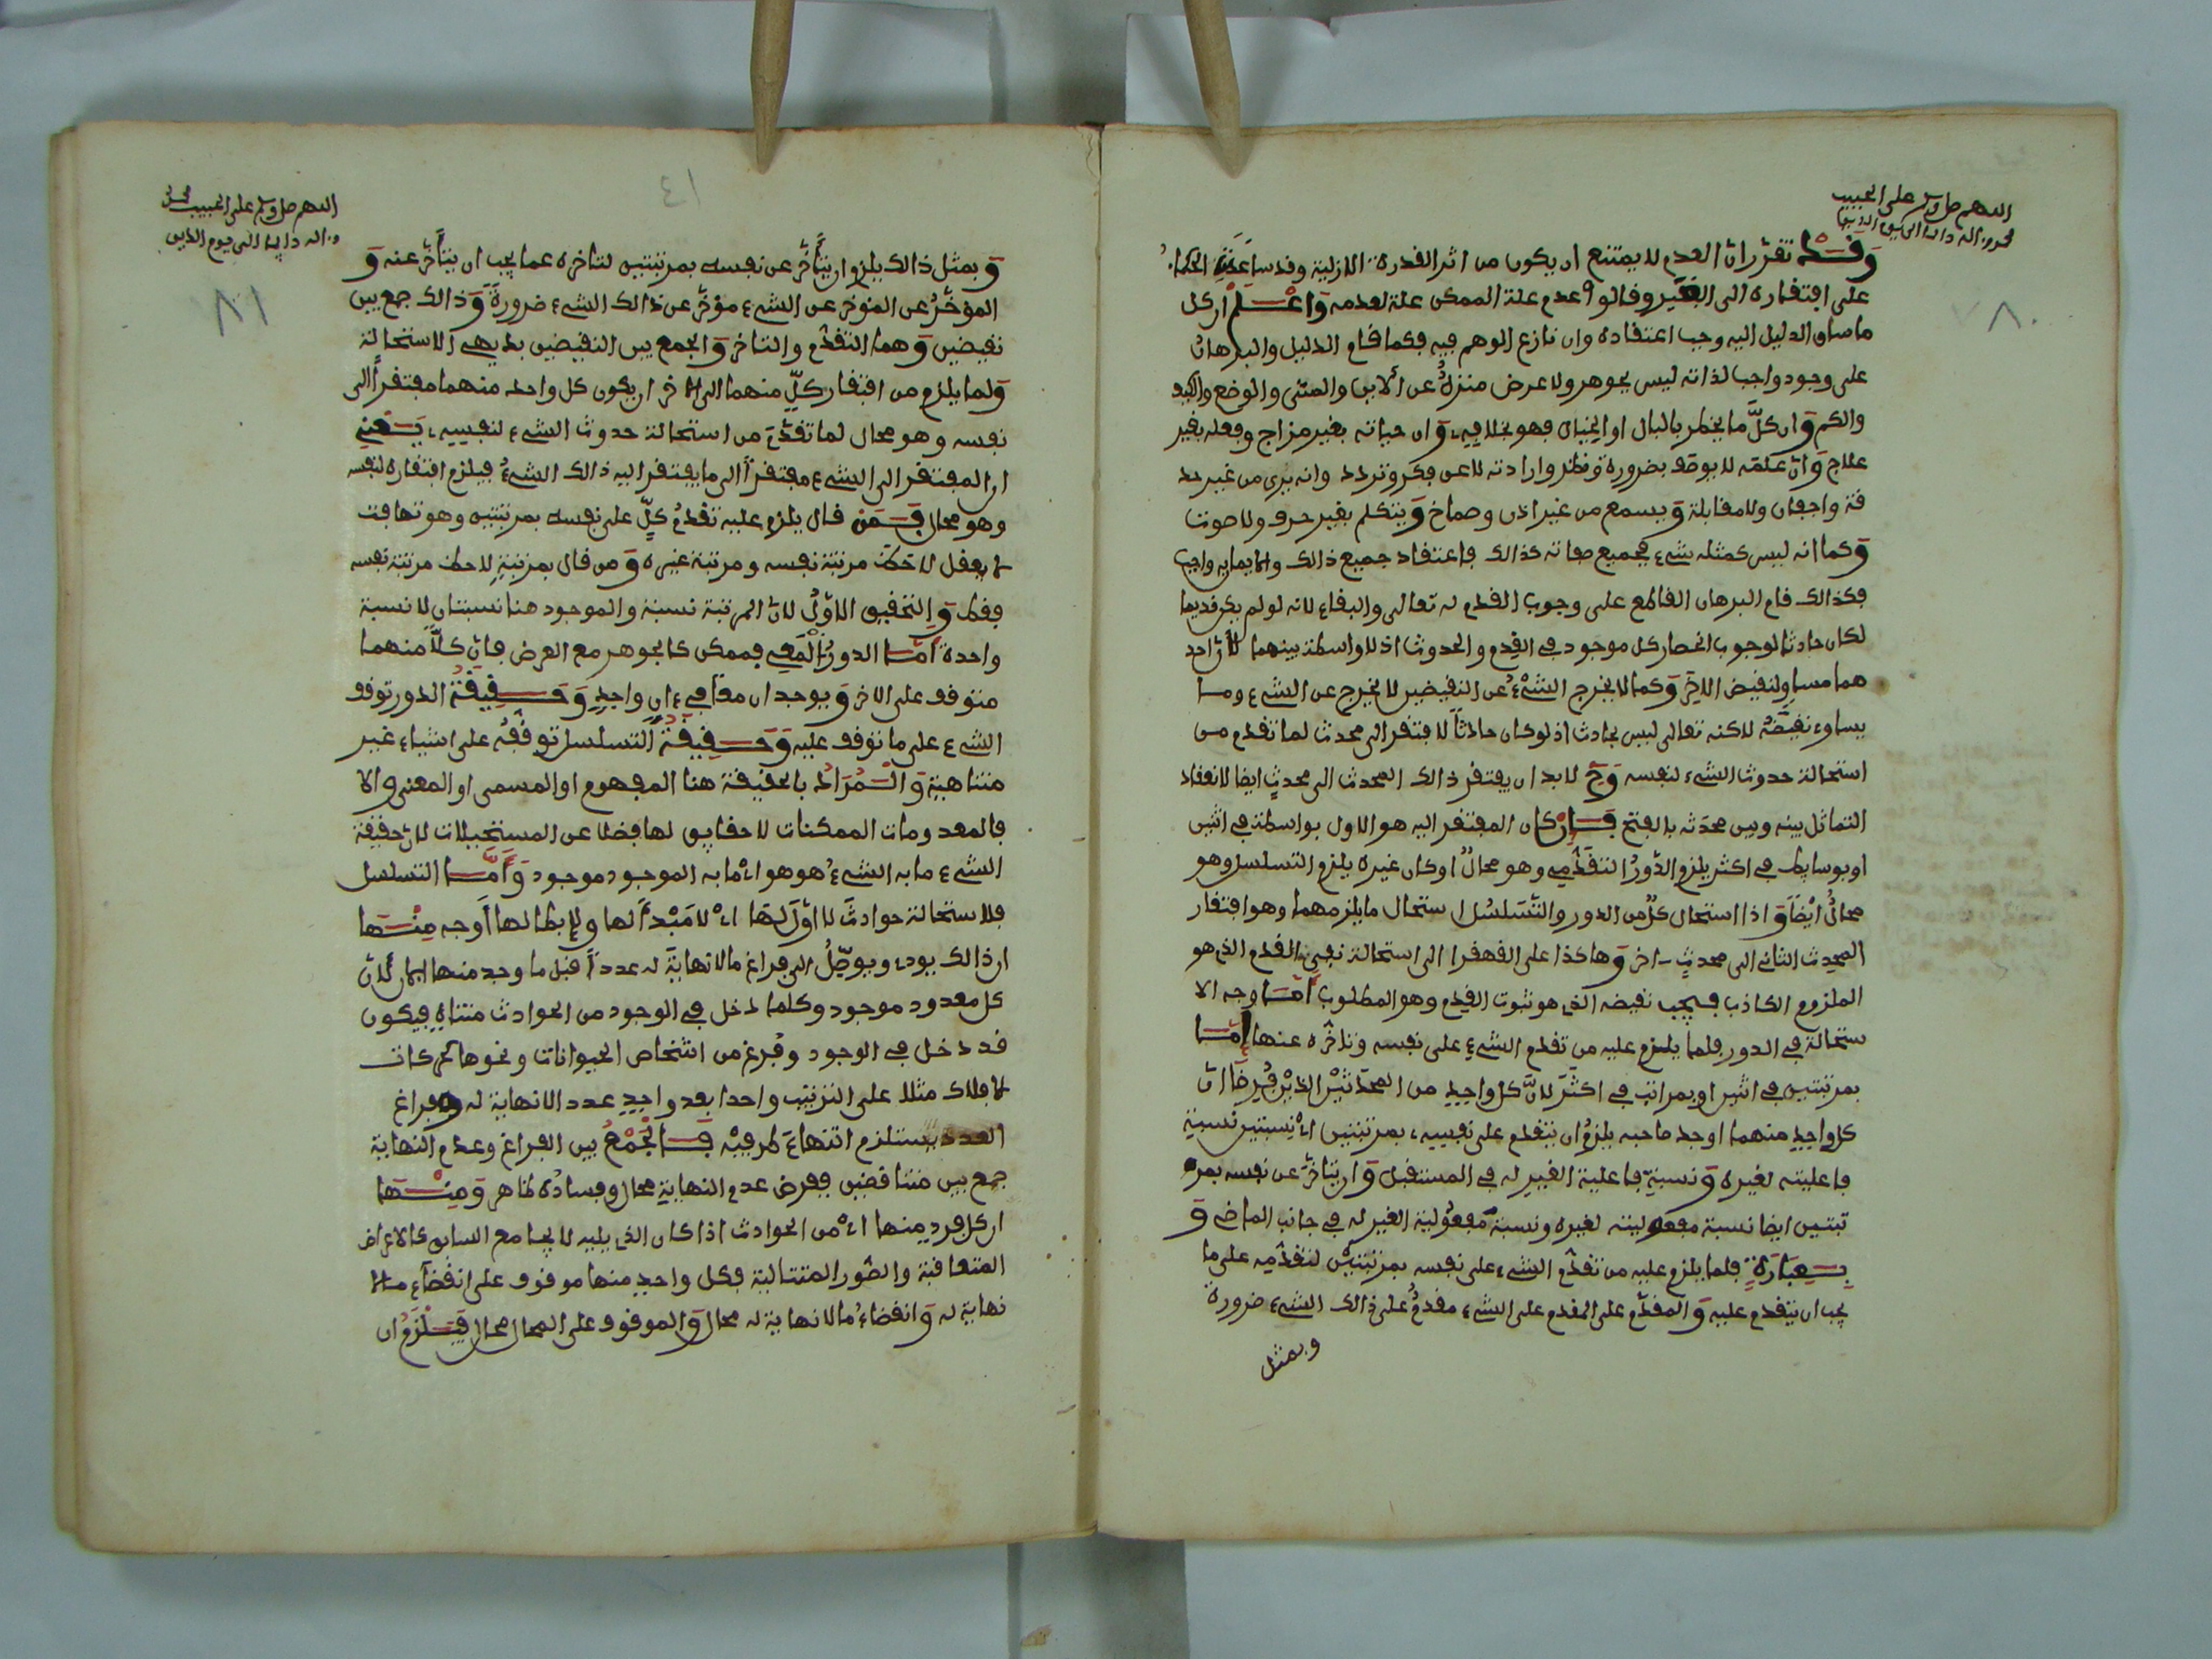 اللهم صل وسلم على الحبيب
محمد واله دايما الى يوم الدين
٨٠
وقد تقرر ان العدم لا يمتنع ان يكون من اثر القدرة الازلية وقد ساعدت الحكماء
على افتقاره الى الغير وقالوا عدم علة الممكن علة لعدمه واعلم ان كل
ما ساق الدليل اليه وجب اعتقاده وان نازع الوهم فيه فكما قام الدليل والبرهان
على وجود واجب لذاته ليس بجوهر ولا عرض منزه عن الاين والمتى والوضع والكيف
والكم وان كل ما يخطر بالبال او الخيال فهو بخلافه وان حياته بغير مزاج وفعله بغير
علاج وان علمه لا يوصف بضرورة ونظر وارادته لا عن فكر وتردد وانه يرى من غير حد
قة واجفان ولا مقابلة ويسمع من غير اذن وصماخ ويتكلم بغير حرف ولا صوت
وكما انه ليس كمثله شيء فجميع صفاته كذالك فاعتقاد جميع ذالك والايمان به واجب
فكذالك قام البرهان القاطع على وجوب القدم له تعالى والبقاء لانه لو لم يكن قديما
لكان حادثا لوجوب انحصار كل موجود في القدم والحدوث اذ لا واسطة بينهما لان احد
هما مساو لنقيض الاخر وكما لا يخرج الشيء عن النقيضين لا يخرج عن الشيء وما
يساوي نقيضه لاكنه تعالى ليس بحادث اذ لو كان حادثا لافتقر الى محدث لما تقدم من
استحالة حدوث الشيء لنفسه وح لا بد ان يفتقر ذالك المحدث الى محدث ايضا لانعقاد
التماثل بينه وبين محدثه بالفتح فان كان المفتقر اليه هو الاول بواسطة في اثنين
او بوسايط في اكثر يلزم الدور التقدمي وهو محال او كان غيره يلزم التسلسل وهو
محال ايضا واذا استحال كل من الدور والتسلسل استحال ملزومهما وهو افتقار
المحدث الثاني الى محدث اخر وهاكذا على القهقرا الى استحالة نفي القدم الذي هو
الملزوم الكاذب فيجب نقيضه الذي هو ثبوت القدم وهو المطلوب اما وجه الا
ستحالة في الدور فلما يلزم عليه من تقدم الشيء على نفسه وتاخره عنها اما
بمرتبتين في اثنين او بمراتب في اكثر لان كل واحد من المحدثين الذين فرضا ان
كل واحد منهما اوجد صاحبه يلزم ان يتقدم على نفسه بمرتبتين اي نسبتين نسبة
فاعليته لغيره ونسبة فاعلية الغير له في المستقبل وان يتاخر عن نفسه بمر
تبتين ايضا نسبة مفعوليته لغيره ونسبة مفعولية الغير له في جانب الماضي و
بعبارة فلما يلزم عليه من تقدم الشيء على نفسه بمرتبتين لتقدمه على ما
يجب ان يتقدم عليه والمقدم على المقدم على الشيء مقدم على ذالك الشيء ضرورة
وبمثل
٤١
اللهم صل وسلم على الحبيب محمد
واله دايما الى يوم الدين
٨١
وبمثل ذالك يلزم ان يتأخر عن نفسه بمرتبتين لتاخره عما يجب ان يتأخر عنه و
المؤخر عن المؤخر عن الشيء مؤخر عن ذالك الشيء ضرورة وذالك جمع بين
نقيضين وهما التقدم والتاخر والجمع بين النقيضين بديهي الاستحالة
ولما يلزم من افتقار كل منهما الى الاخر ان يكون كل واحد منهما مفتقرا الى
نفسه وهو محال لما تقدم من استحالة حدوث الشيء لنفسه يعني
ان المفتقر الى الشيء مفتقر الى ما يفتقر اليه ذالك الشيء فيلزم افتقاره لنفسه
وهو محال فمن قال يلزم عليه تقدم كل على نفسه بمرتبتين وهو تهافت
لا يعقل لاحظ مرتبة نفسه ومرتبة غيره ومن قال بمرتبة لاحظ مرتبة نفسه
فقط والتحقيق الاول لان المرتبة نسبة والموجود هنا نسبتان لا نسبة
واحدة اما الدور المعي فممكن كالجوهر مع العرض فان كلا منهما
متوقف على الاخر ويوجدان معا في ان واحد وحقيقة الدور توقف
الشيء على ما توقف عليه وحقيقة التسلسل توقفه على اشياء غير
متناهية والمراد بالحقيقة هنا المفهوم او المسمى او المعنى والا
فالمعدومات الممكنات لا حقايق لها فضلا عن المستحيلات لان حقيقة
الشيء ما به الشيء هو هو اي ما به الموجود موجود واما التسلسل
فلاستحالة حوادث لا اول لها اي لا مبدأ لها ولابطالها أوجه منها
ان ذالك يودي ويوصل الى فراغ ما لا نهاية له عددا قبل ما وجد منها الان لان
كل معدود موجود وكلما دخل في الوجود من الحوادث متناه فيكون
قد دخل في الوجود وفرغ من اشخاص الحيوانات ونحوها كحركات
الافلاك مثلا على الترتيب واحدا بعد واحد عدد لا نهاية له وفراغ
العدد يستلزم انتهاء طرفيه فالجمع بين الفراغ وعدم النهاية
جمع بين متناقضين ففرض عدم النهاية محال وفساده ظاهر ومنها
ان كل فرد منها اي من الحوادث اذا كان الذي يليه لا يجامع السابق كالاعراض
المتعاقبة والصور المتتالية فكل واحد منها موقوف على انقضاء ما لا
نهاية له وانقضاء ما لا نهاية له محال والموقوف على المحال محال فيلزم ان